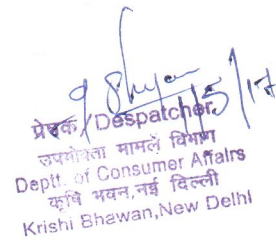 1/5/17
प्रेषक/Despatcher
उपभोक्ता मामले विभाग
Deptt. of Consumer Affairs
कृषि भवन, नई दिल्ली
Krishi Bhawan, New Delhi